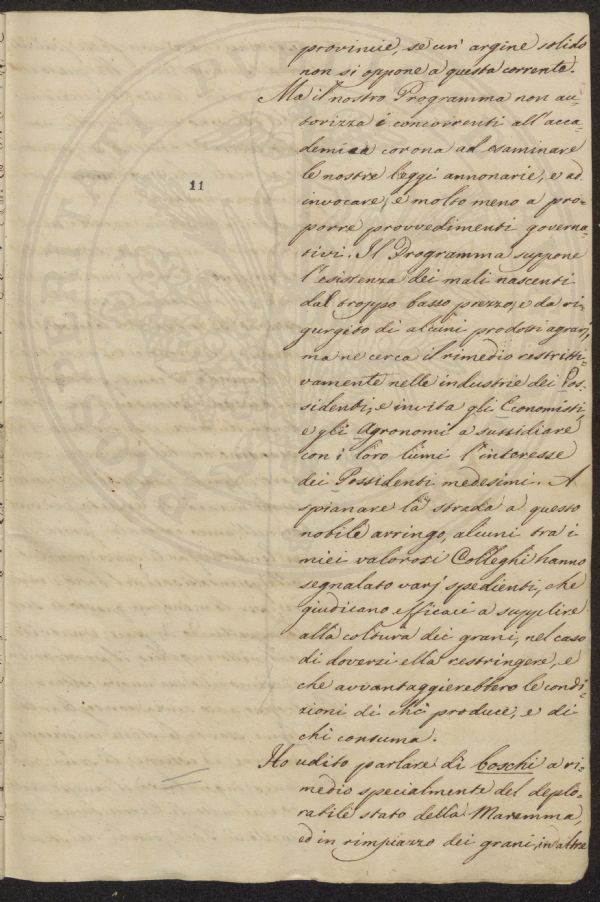 provincie, se un' argine solido
non si oppone a questa corrente.
Ma il nostro Programma non au-
torizza i concorrenti all'acca-
demica corona ad esaminare
le nostre leggi annonarie, e ad
invocare, e molto meno a pro-
porre provvedimenti governa-
tivi. Il Programma suppone
l'esistenza dei mali nascenti
dal troppo basso prezzo, e da ri-
gurgito di alcuni prodotti agrarj,
ma ne cerca il rimedio restritti-
vamente nelle industrie dei Pos-
sidenti, e invita gli Economisti,
e gli Agronomi a sussidiare
con i loro lumi l'interesse
dei Possidenti medesimi. A
spianare la strada a questo
nobile arringo, alcuni tra i
miei valorosi Colleghi hanno
segnalato varj spedienti, che
giudicano efficaci a supplire
alla coltura dei grani, nel caso
di doversi ella restringere, e
che avvantaggierebbero le condi-
zioni di chi produce, e di
chi consuma.
Ho udito parlare di boschi a ri-
medio specialmente del deplo-
rabile stato della Maremma,
ed in rimpiazzo dei grani, in altre
11
PROSPERITATI PUBL